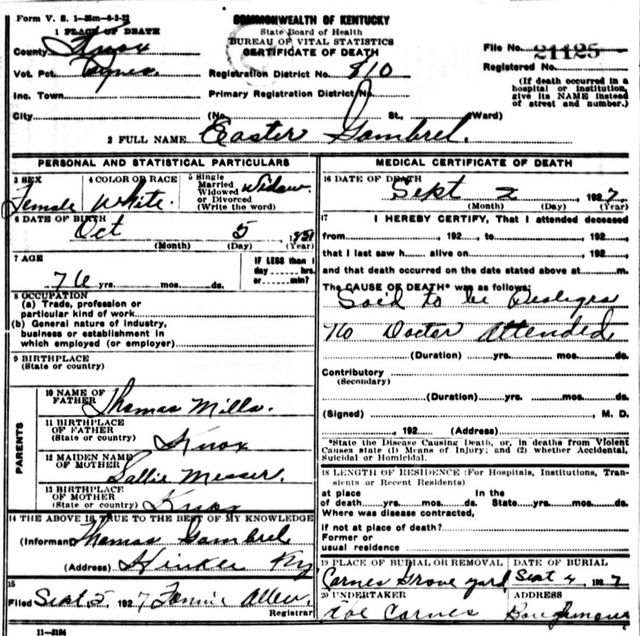 Form V. S. 1-35m-6-3-22
COMMONWEALTH OF KENTUCKY
State Board of Health
BUREAU OF VITAL STATISTICS
CERTIFICATE OF DEATH
1 PLACE OF DEATH
County Knox
Vot. Pct.
Inc. Town
City
Registration District No. 810
Primary Registration District No.
(No. St., Ward)
File No. 21125
Registered No.
(If death occurred in a
hospital or institution,
give its NAME instead
of street and number.)
2 FULL NAME Easter Gambrel.
PERSONAL AND STATISTICAL PARTICULARS
3 SEX
Female
4 COLOR OR RACE
White.
5 Single
Married
Widowed
or Divorced
(Write the word)
Widow
6 DATE OF BIRTH
Oct 5
(Month) (Day) (Year)
7 AGE
76 yrs. mos. ds.
IF LESS than 1
day hrs.
or min?
8 OCCUPATION
(a) Trade, profession or
particular kind of work
(b) General nature of industry,
business or establishment in
which employed (or employer)
9 BIRTHPLACE
(State or country)
PARENTS
10 NAME OF
FATHER
Thomas Mills.
11 BIRTHPLACE
OF FATHER
(State or country)
Knox
12 MAIDEN NAME
OF MOTHER
Sallie Messer.
13 BIRTHPLACE
OF MOTHER
(State or country)
Knox
14 THE ABOVE IS TRUE TO THE BEST OF MY KNOWLEDGE
(Informant) Thomas Gambrel
(Address) Hinkle Ky
15
Filed Sept 5 1927 Fannie Allen
Registrar
11-3184
MEDICAL CERTIFICATE OF DEATH
16 DATE OF DEATH
Sept 2, 1927.
(Month) (Day) (Year)
17 I HEREBY CERTIFY, That I attended deceased
from , 192 , to , 192 ,
that I last saw h alive on , 192 ,
and that death occurred on the date stated above at m.
The CAUSE OF DEATH* was as follows:
Said to be
No Doctor Attended
(Duration) yrs. mos. ds.
Contributory
(Secondary)
(Duration) yrs. mos. ds.
(Signed) , M. D.
, 192 (Address)
*State the Disease Causing Death, or, in deaths from Violent
Causes state (1) Means of Injury; and (2) whether Accidental,
Suicidal or Homicidal.
18 LENGTH OF RESIDENCE (For Hospitals, Institutions, Tran-
sients or Recent Residents)
at place In the
of death yrs. mos. ds. State yrs. mos. ds.
Where was disease contracted,
if not at place of death?
Former or
usual residence
19 PLACE OF BURIAL OR REMOVAL
Carnes Grove yard
DATE OF BURIAL
Sept 4, 1927
20 UNDERTAKER
Carnes
ADDRESS